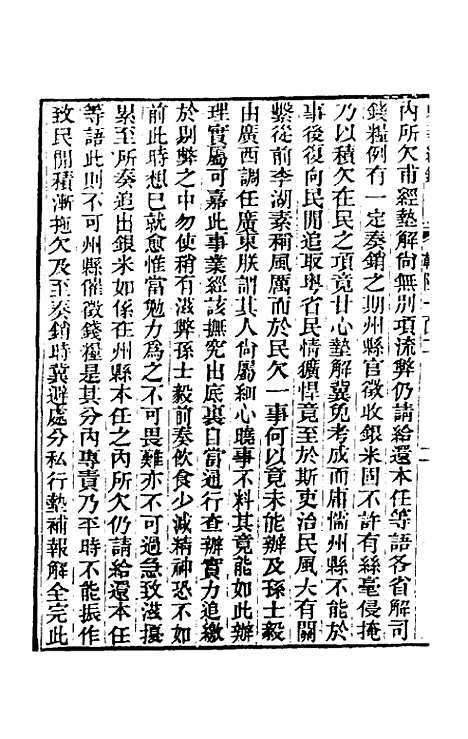 內所欠甫經墊解尙無別項流弊仍請給還本任等語各省解司
錢糧例有一定奏銷之期州縣官徵收銀米固不許有絲毫侵掩
乃以積欠在民之項竟甘心墊解冀免考成而庸懦州縣不能於
事後復向民間追取粵省民情獷悍竟至於斯吏治民風大有關
繫從前李湖素稱風厲而於民欠一事何以竟未能辦及孫士毅
由廣西調任廣東朕謂其人尙屬細心曉事不料其竟能如此辦
理實屬可嘉此事業經該撫究出底裏自當通行查辦實力追繳
於剔弊之中勿使稍有滋弊孫士毅前奏飮食少減精神恐不如
前此時想已就愈惟當勉力爲之不可畏難亦不可過急致滋擾
累至所奏追出銀米如係在州縣本任之內所欠仍請給還本任
等語此則不可州縣催徵錢糧是其分內專責乃平時不能振作
致民間積漸拖欠及至奏銷時冀避處分私行墊補報解全完此